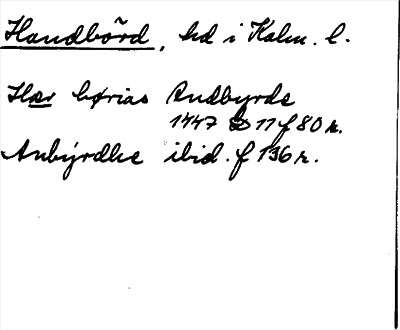 Handbörd, hd i Kalm. l.
Hær børias Andbyrde
1447 D 11 f 80 r.
Anbýrdhe ibid. f 136 r.